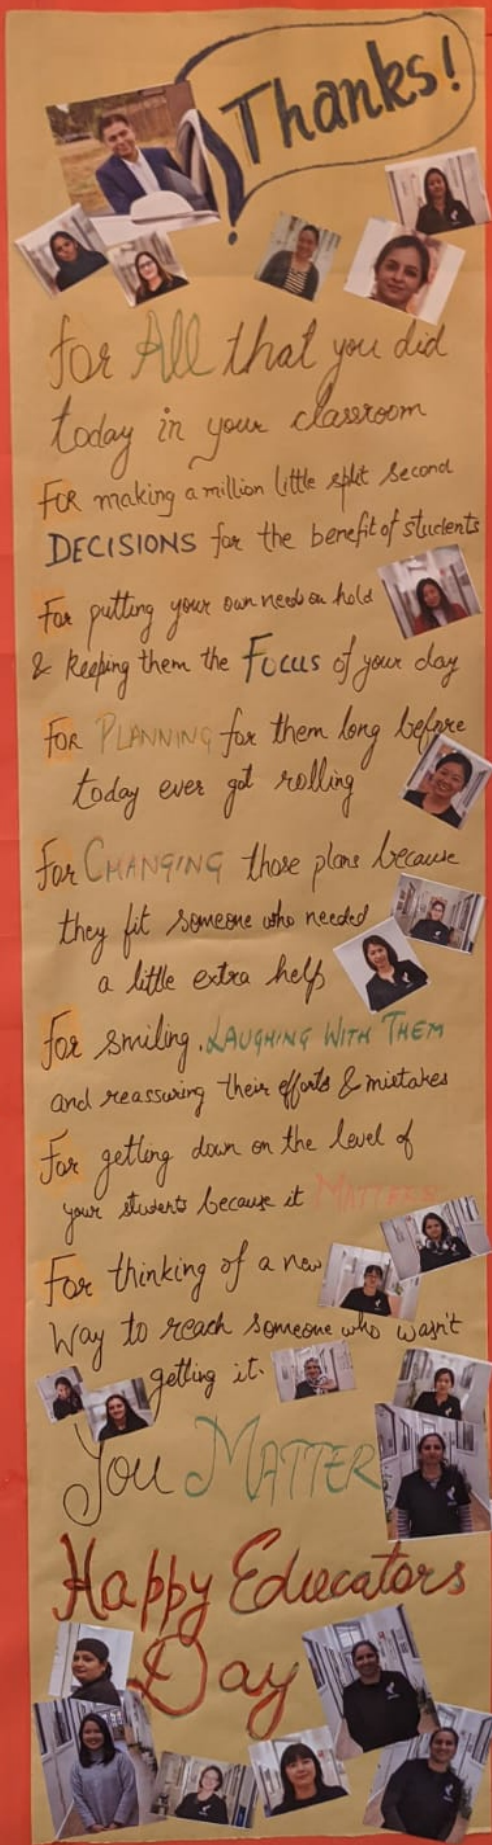 Thanks!
For All that you did
today in your classroom
FOR making a million little split second
DECISIONS for the benefit of students
For putting your own need on hold
& keeping them the Focus of your day
FOR PLANNING for them long before
today ever got rolling
For CHANGING those plans because
they fit someone who needed
a little extra help
For smiling, LAUGHING WITH THEM
and reassuring their efforts & mistakes
For getting down on the level of
your students because it MATTERS
For thinking of a new
Way to reach someone who wasn't
getting it.
You MATTER
Happy Educators
Day